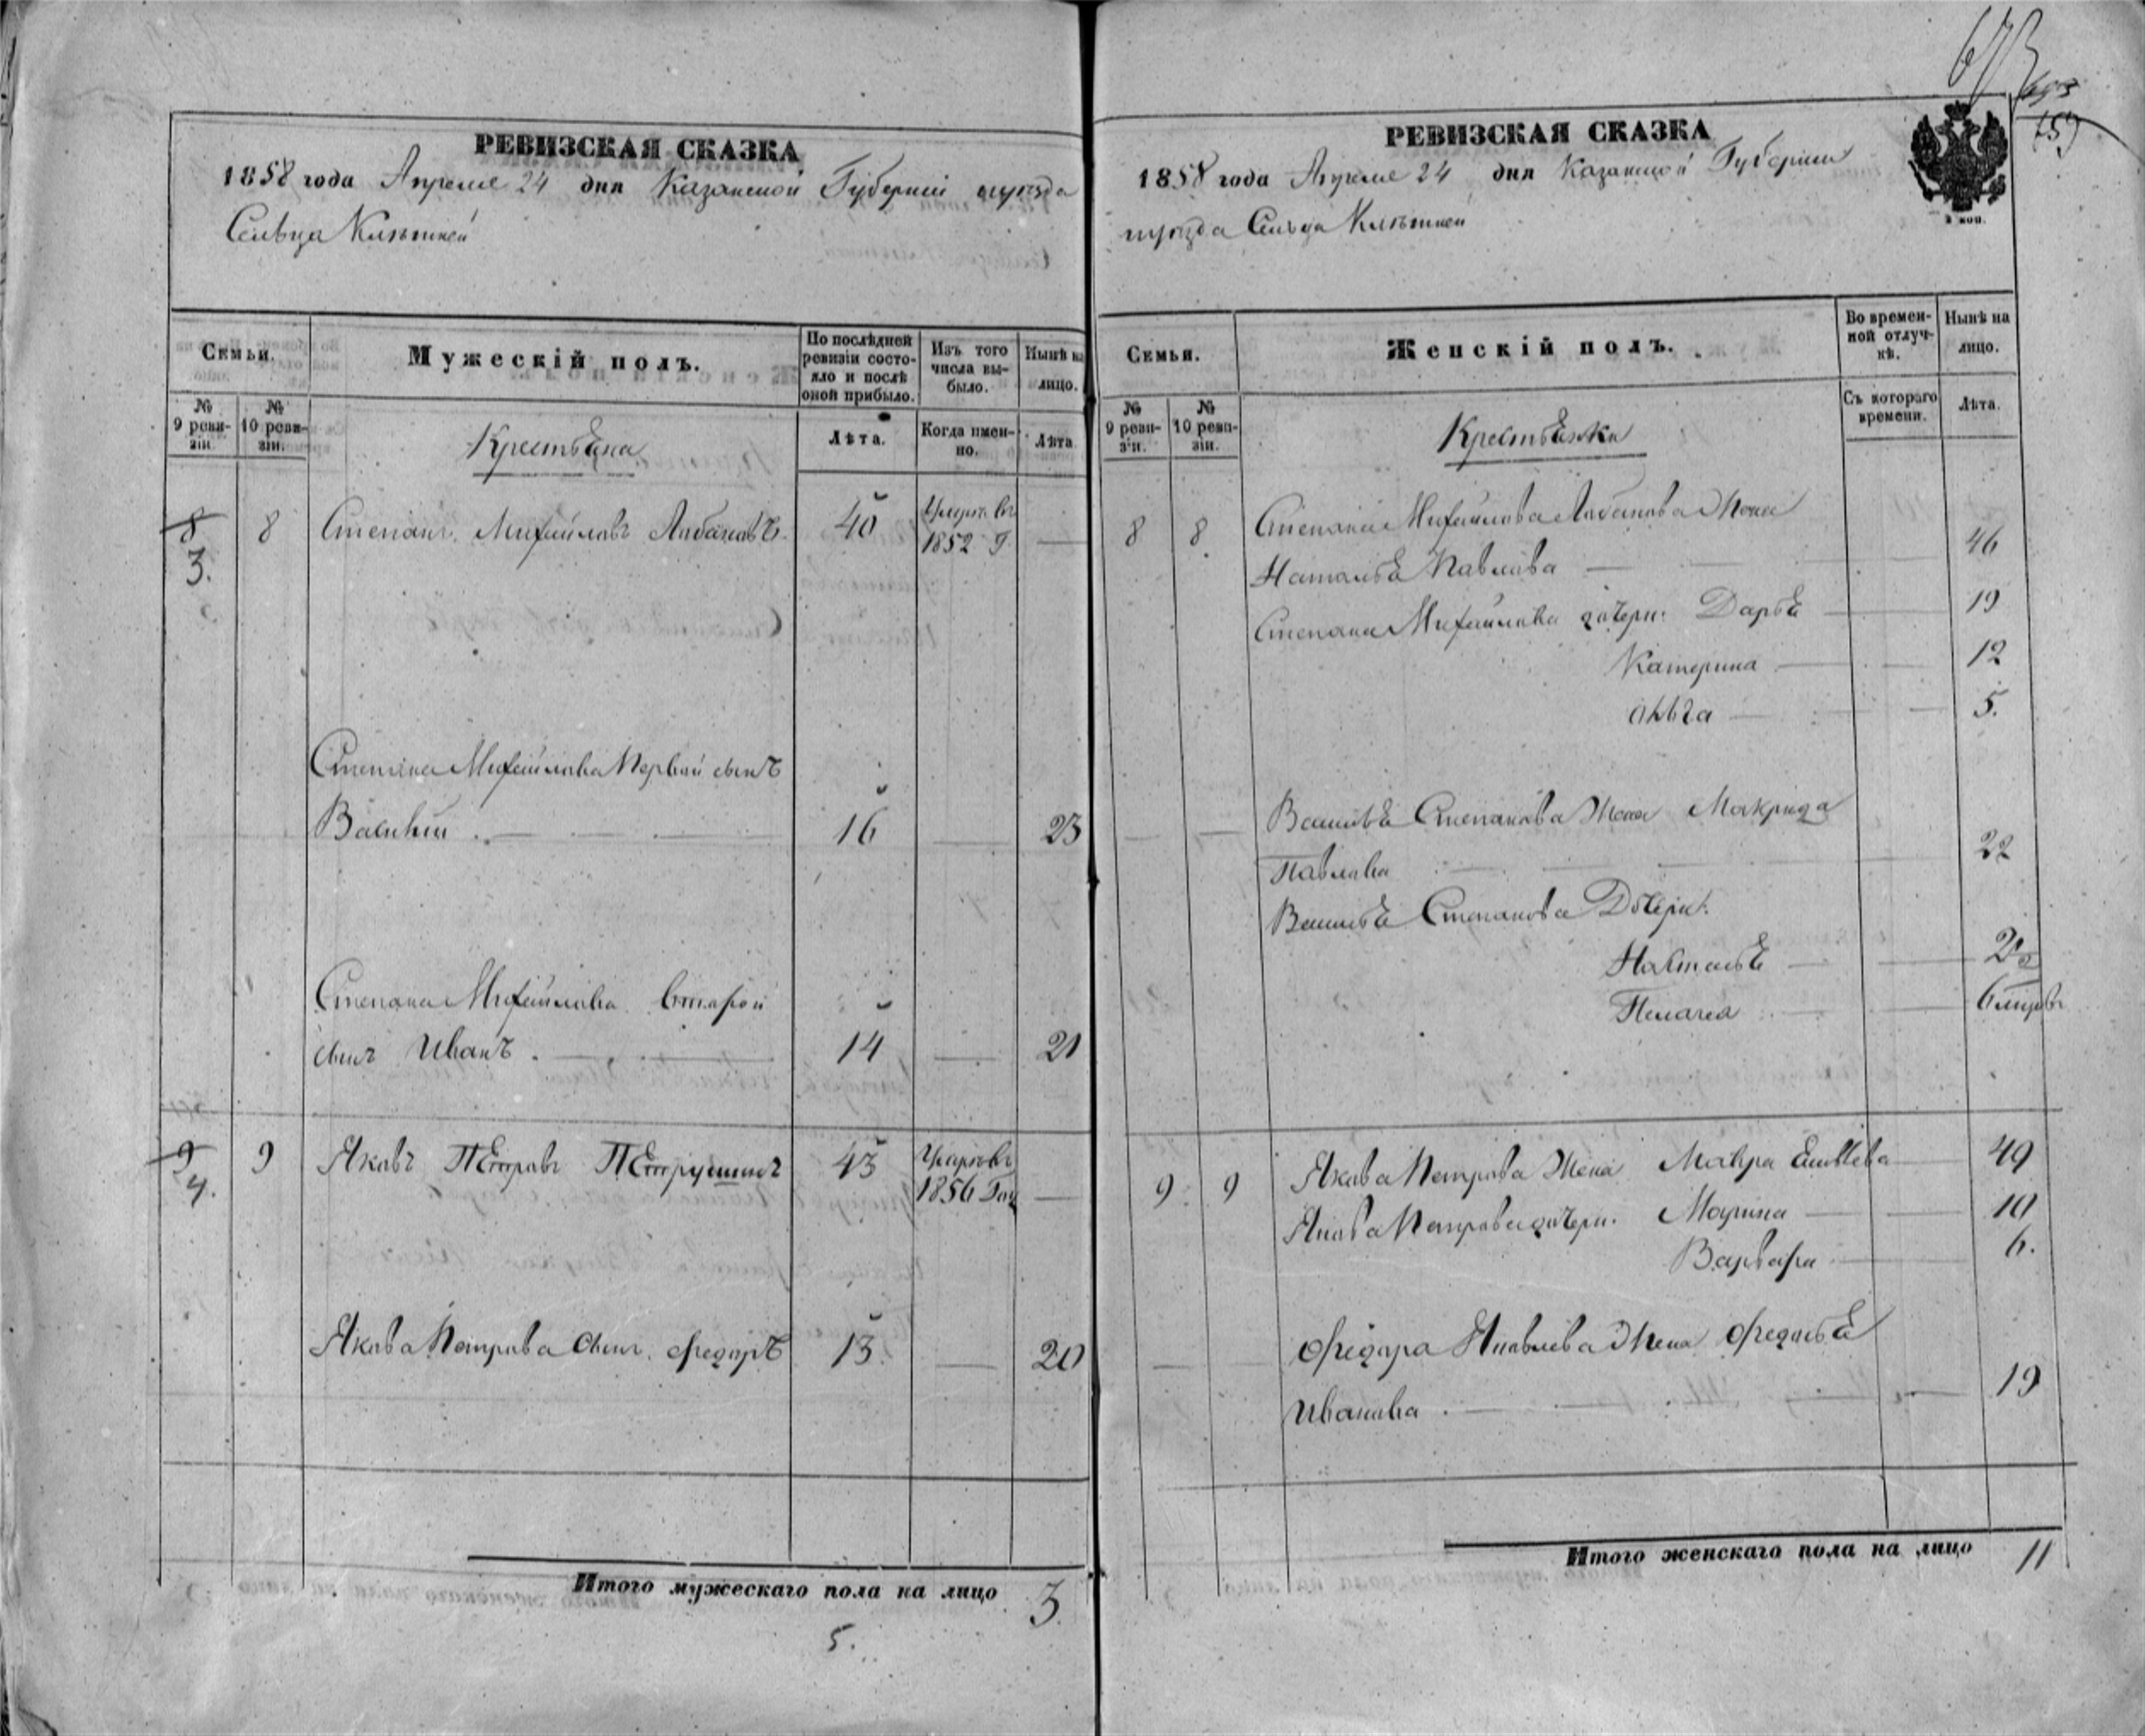 673
693
159
РЕВИЗСКАЯ СКАЗКА
1858 года Апреля 24 дня Казанской Губернии
Сельца
Семьи.
Мужескій полъ.
По послѣдней ревизіи состояло и послѣ оной прибыло.
Изъ того числа выбыло.
Нынѣ на лицо.
№ 9 ревизіи.
№ 10 ревизіи.
Крестьяна
Лѣта.
Когда именно.
Лѣта
8 8 Степанъ Михайлавъ 40 —
3. 1852 Г.
Степана Михайлава Первай сынъ
Василий — 16 — 23
Степана Михайлава Втарой
сынъ Иванъ — 14 — 21
9 9 Якавъ Петравъ Петрушинъ 43 —
4. 1856
Якава Петрава сынъ Федаръ 13 — 20
Итого мужескаго пола на лицо 3
5.
РЕВИЗСКАЯ СКАЗКА
1858 года Апреля 24 дня Казанской Губернии
Сельца
Семьи.
Женскій полъ.
Во временной отлучкѣ.
Нынѣ на лицо.
№ 9 ревизіи.
№ 10 ревизіи.
Крестьянки
Съ котораго времени.
Лѣта.
8 8 Степана Михайлава Жена
Наталья Павлава — 46
Степана Михайлава дочери: Дарья — 19
Катерина — 12
5.
Василья Степанова Жена Макрида
Павлава — 22
Василья Степанова Дочери:
Настасья — 2
Пелагея —
9 9 Якава Петрава Жена Мавра — 49
Якава Петрава дочери: Марина — 10
Варвара — 6.
Федара Яковлева Жена Федасья
Иванава — 19
Итого женскаго пола на лицо 11